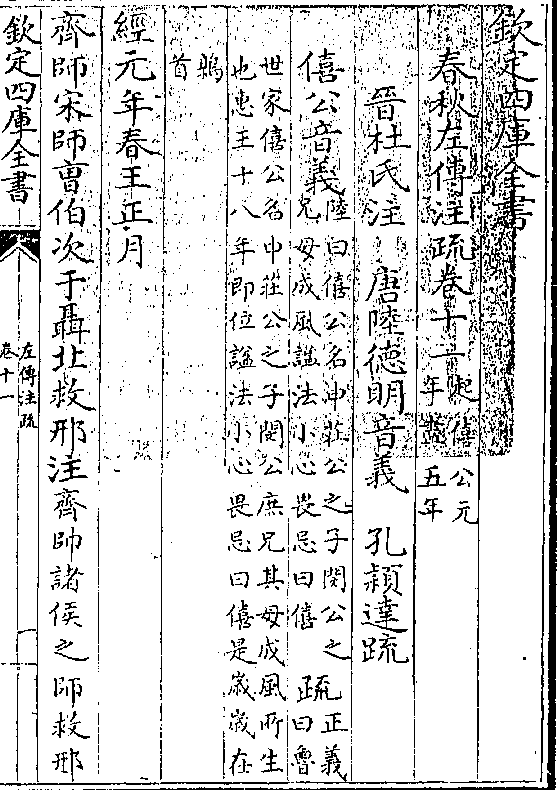 欽定四庫全書
春秋左傳注疏卷十一
起僖公元
年盡五年
晉杜氏注 唐陸德明音義 孔穎達疏
僖公音義
陸曰僖公名申莊公之子閔公之
兄母成風諡法小心畏忌曰僖
疏
正義
曰魯
世家僖公名申莊公之子閔公庶兄其母成風所生
也惠王十八年即位諡法小心畏忌曰僖是歲歲在
鶉
首
經元年春王正月
齊師宋師曹伯次于聶北救邢注齊帥諸侯之師救邢
欽定四庫全書
左傳注疏
卷十一